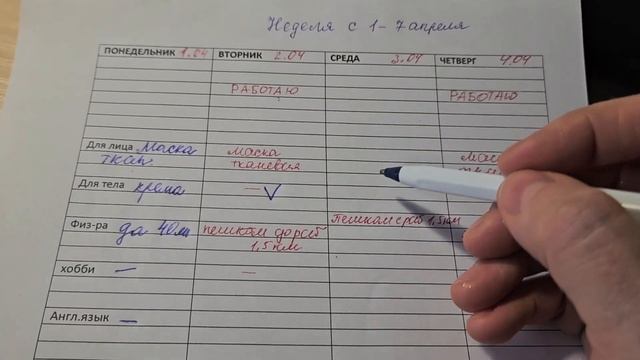 Неделя с 1-7 апреля
ПОНЕДЕЛЬНИК 1.04 ВТОРНИК 2.04 СРЕДА 3.04 ЧЕТВЕРГ 4.04
РАБОТАЮ РАБОТАЮ
Для лица Маска маска мас
ткан тканевая
Для тела крема —
Физ-ра да 40м пешком до раб пешком с раб 1,5 км
1,5 км
хобби — —
Англ.язык —